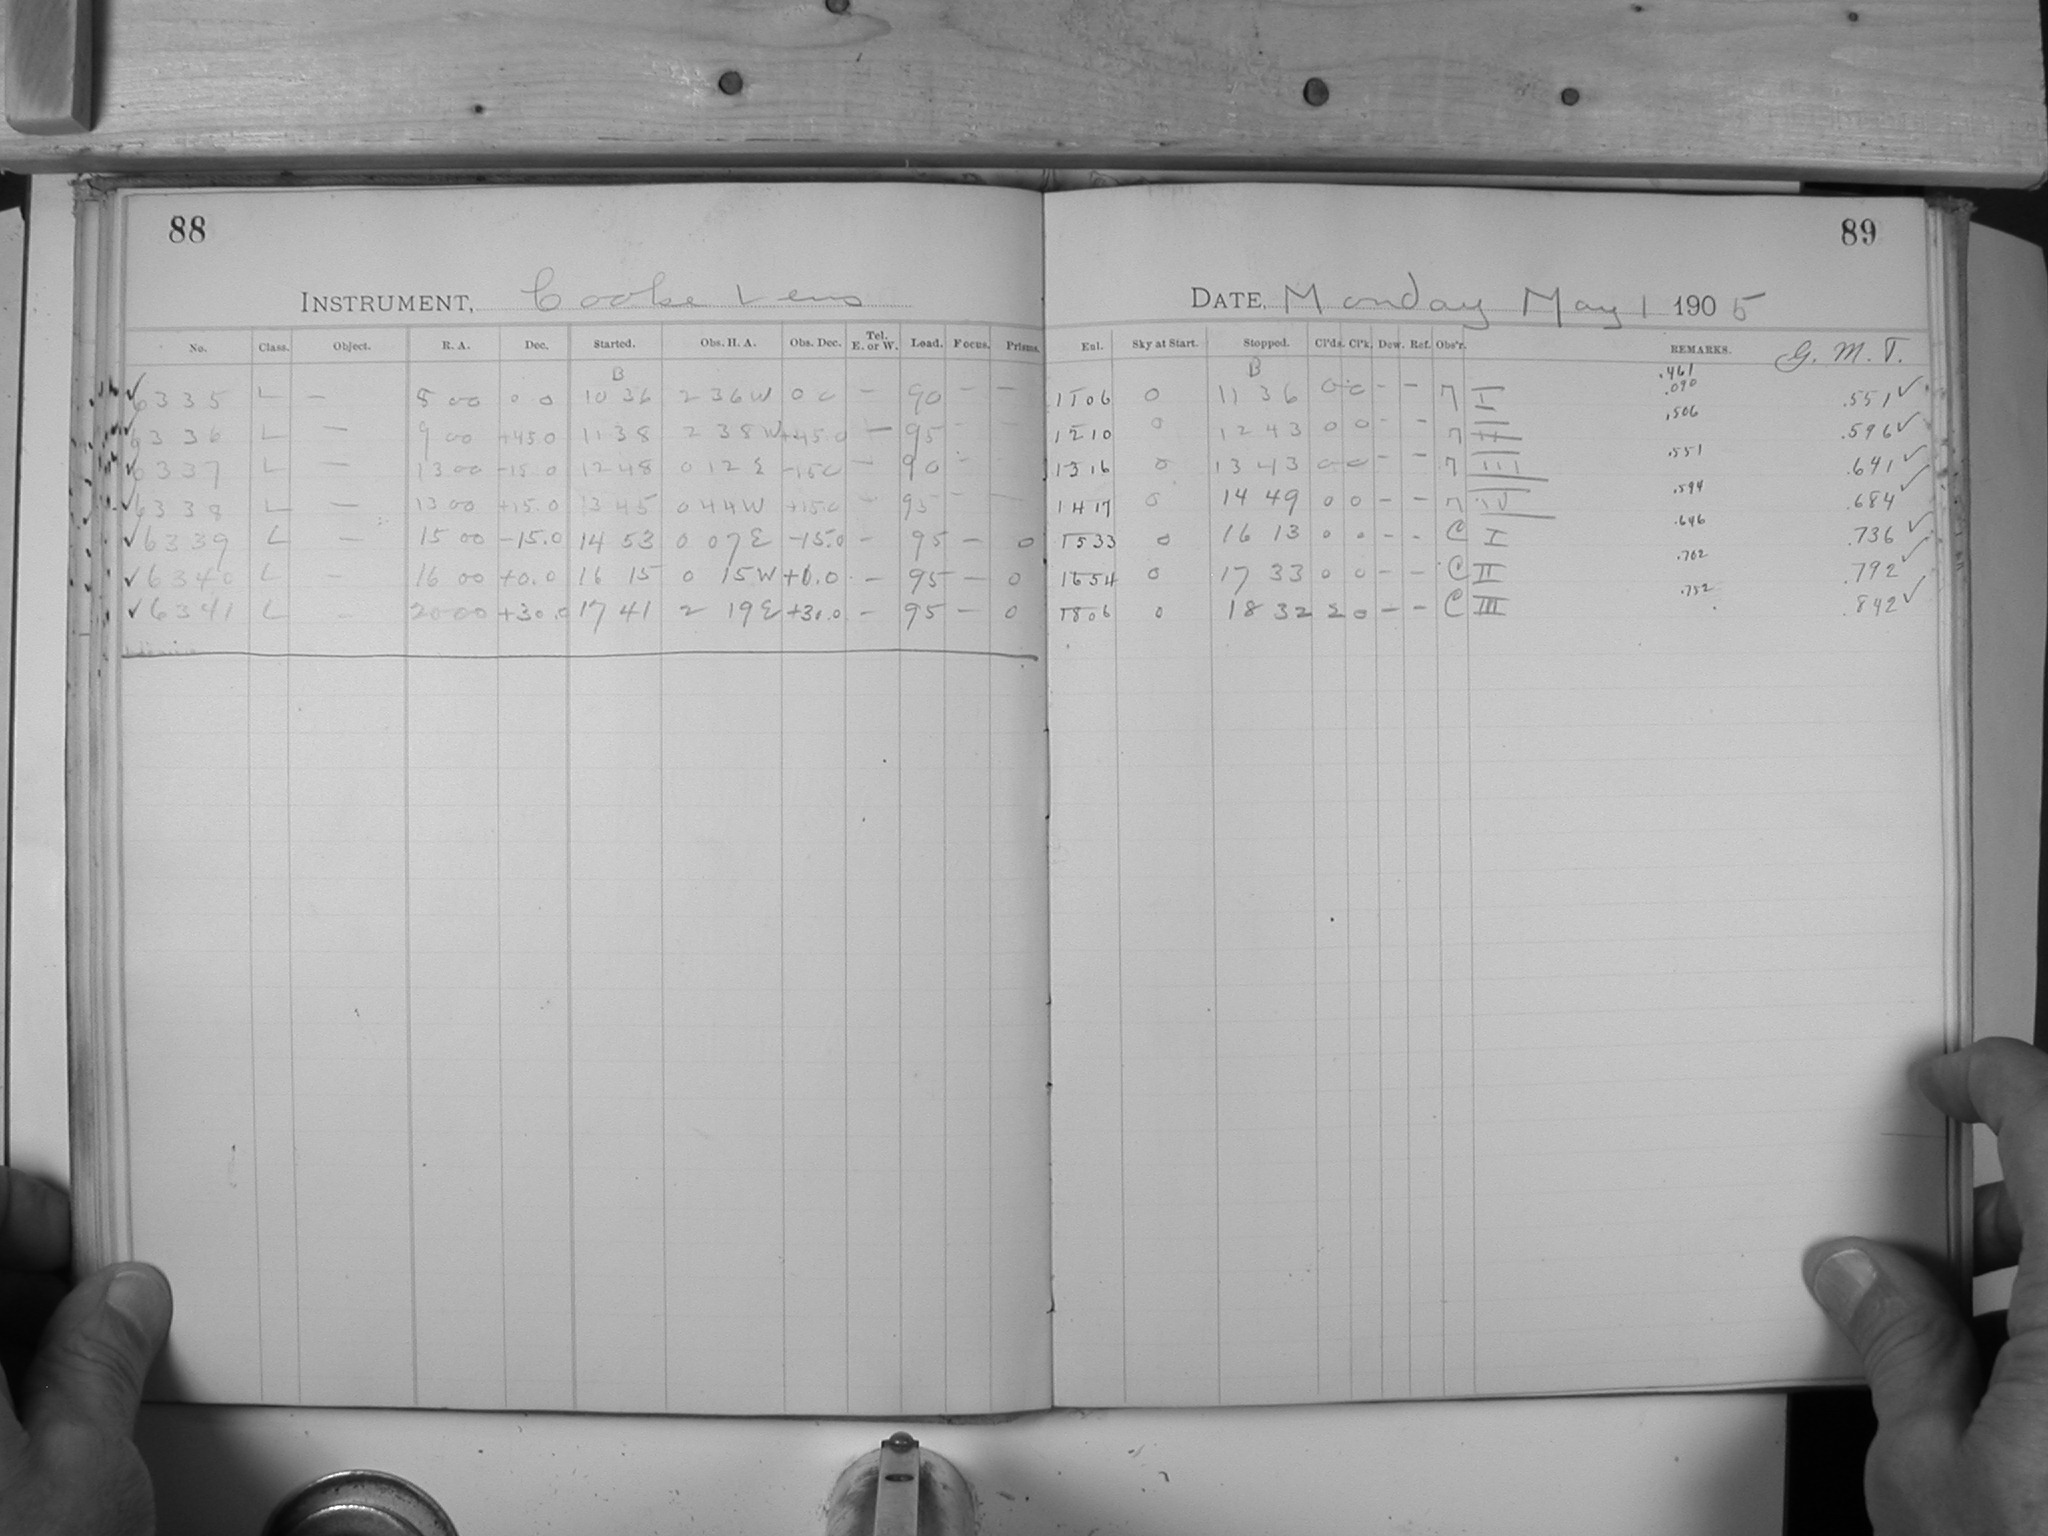 88
INSTRUMENT, Cooke Lens
No. Class. Object. R. A. Dec. Started. Obs. H. A. Obs. Dec. Tel. E. or W. Load. Focus. Prisms.
B
✓6335 L — 8 00 0 0 10 36 2 36 W 0 0 — 90 — —
✓6336 L — 9 00 +45.0 11 38 2 38 W +45.0 — 95 - -
✓6337 L — 13 00 -15.0 12 48 0 12 E -15.0 — 90 - -
✓6338 L — 13 00 +15.0 13 45 0 44 W +15.0 — 95 - —
✓6339 L — 15 00 -15.0 14 53 0 07 E -15.0 — 95 — 0
✓6340 L — 16 00 +0.0 16 15 0 15 W +0.0 — 95 — 0
✓6341 L — 20 00 +30.0 17 41 2 19 E +30.0 — 95 — 0
89
DATE, Monday May 1 1905
Enl. Sky at Start. Stopped. Cl'ds. Cl'k. Dew. Ref. Obs'r. REMARKS. G. M. T.
B .461
1106 0 11 36 0 0 - - I .090 .551 ✓
1210 0 12 43 0 0 - - II .506 .596 ✓
1316 0 13 43 0 0 - - III .551 .641 ✓
1417 0 14 49 0 0 - - IV .594 .684 ✓
1533 0 16 13 0 0 - - C I .646 .736 ✓
1654 0 17 33 0 0 - - C II .702 .792 ✓
1806 0 18 32 2 0 - - C III .752 .842 ✓